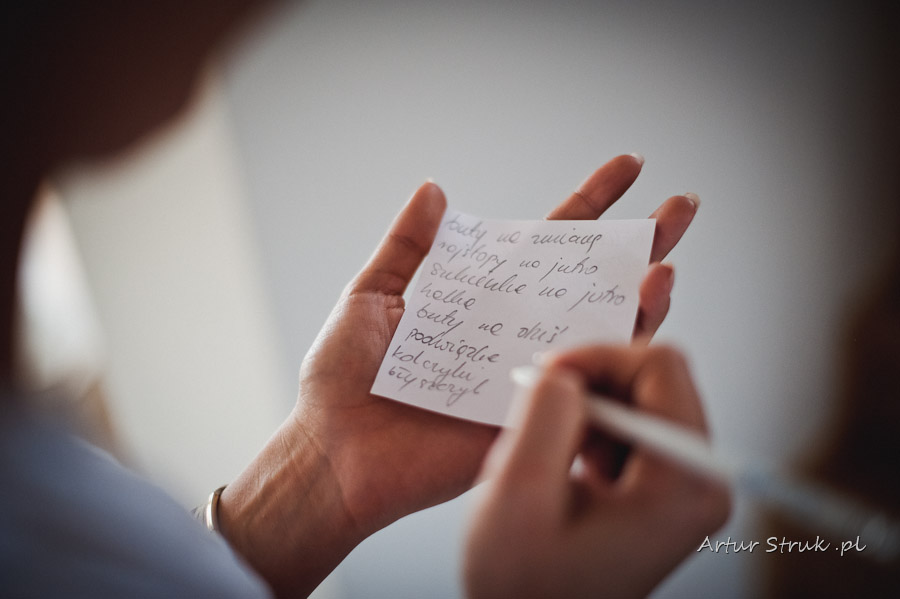 buty na zmianę
rajstopy na jutro
sukienka na jutro
halka
buty na dziś
podwiązka
kolczyki
błyszczyk
Artur Struk .pl